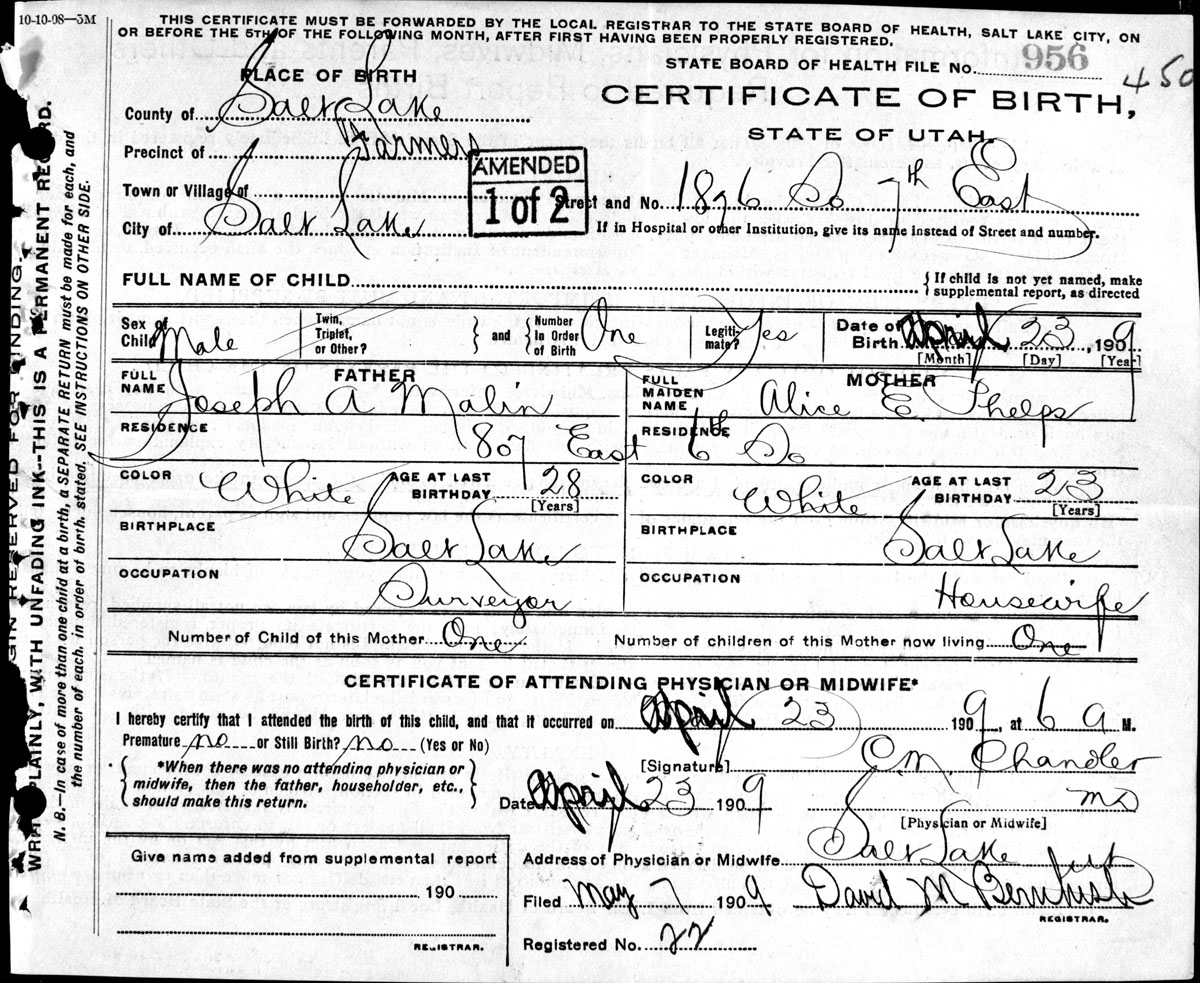 10-10-08—5M
THIS CERTIFICATE MUST BE FORWARDED BY THE LOCAL REGISTRAR TO THE STATE BOARD OF HEALTH, SALT LAKE CITY, ON
OR BEFORE THE 5TH OF THE FOLLOWING MONTH, AFTER FIRST HAVING BEEN PROPERLY REGISTERED.
STATE BOARD OF HEALTH FILE No. 956
450
PLACE OF BIRTH
CERTIFICATE OF BIRTH,
STATE OF UTAH.
County of Salt Lake
Precinct of Farmers
AMENDED
1 of 2
Town or Village of
Street and No. 1876 So 7th East
City of Salt Lake
If in Hospital or other Institution, give its name instead of Street and number.
FULL NAME OF CHILD
{ If child is not yet named, make supplemental report, as directed
Sex of Child Male
Twin, Triplet, or Other?
} and { Number In Order of Birth One
Legitimate? Yes
Date of Birth April 23, 1909
[Month] [Day] [Year]
FATHER
FULL NAME Joseph A Malin
MOTHER
FULL MAIDEN NAME Alice E. Phelps
RESIDENCE 807 East 6th So
RESIDENCE
COLOR White
AGE AT LAST BIRTHDAY 28
[Years]
COLOR White
AGE AT LAST BIRTHDAY 23
[Years]
BIRTHPLACE Salt Lake
BIRTHPLACE Salt Lake
OCCUPATION Surveyor
OCCUPATION Housewife
Number of Child of this Mother One
Number of children of this Mother now living One
CERTIFICATE OF ATTENDING PHYSICIAN OR MIDWIFE*
I hereby certify that I attended the birth of this child, and that it occurred on April 23 1909, at 6 a M.
Premature no or Still Birth? no (Yes or No)
{ *When there was no attending physician or midwife, then the father, householder, etc., should make this return. }
[Signature] C.M. Chandler
MD
[Physician or Midwife]
Date April 23 1909
Give name added from supplemental report
190
REGISTRAR.
Address of Physician or Midwife Salt Lake
Filed May 7 1909 David M
REGISTRAR.
Registered No. 22
GIN RESERVED FOR BINDING
WRITE PLAINLY, WITH UNFADING INK--THIS IS A PERMANENT RECORD.
N. B.—In case of more than one child at a birth, a SEPARATE RETURN must be made for each, and
the number of each, in order of birth, stated. SEE INSTRUCTIONS ON OTHER SIDE.